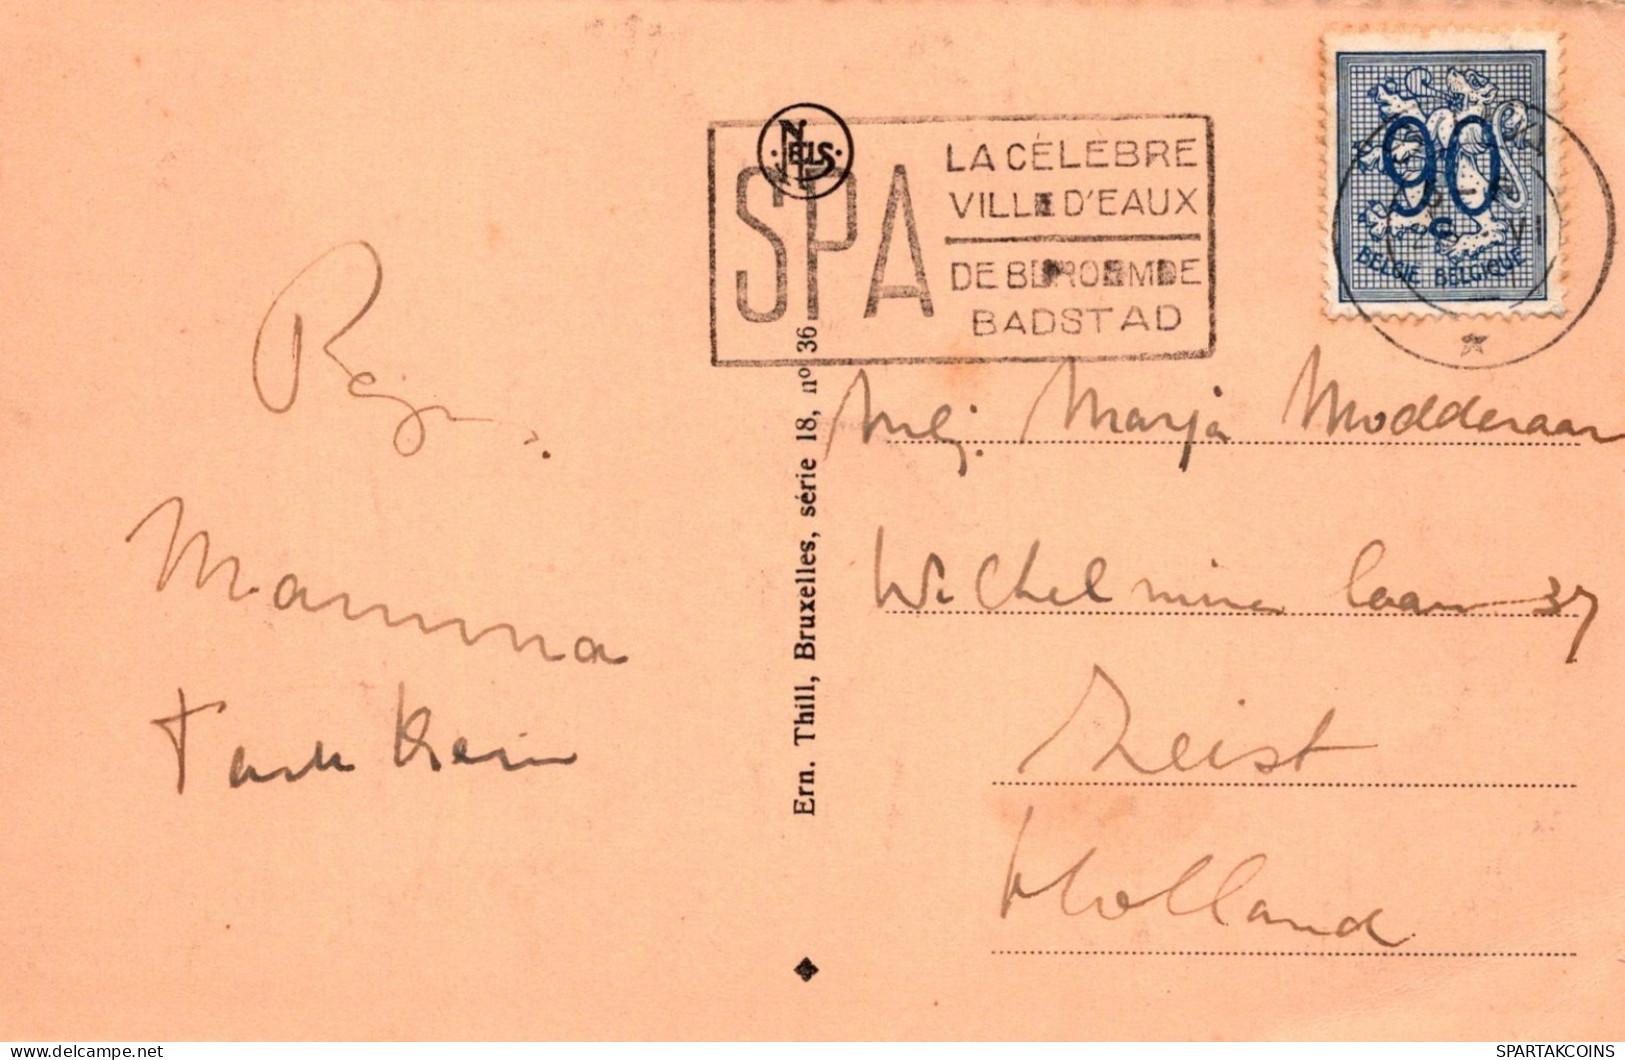 NELS
SPA
LA CÉLEBRE
VILLE D'EAUX
DE BEROEMDE
BADSTAD
90
c
BELGIE BELGIQUE
Mej. Marja Modderaar
Wilhelmina laan 37
Zeist
Holland
Mamma
Ern. Thill, Bruxelles, série 18, nº 36
delcampe.net
SPARTAKCOINS